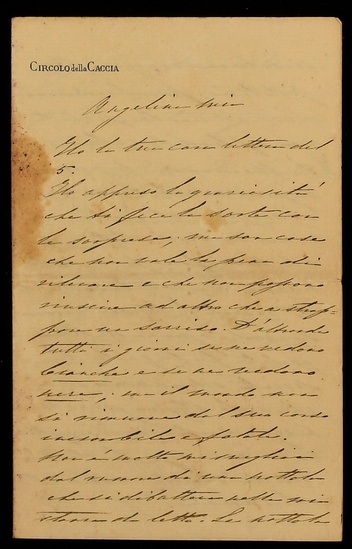 CIRCOLO della CACCIA
Angelina mia
Ho la tua cara lettera del
5.
Ho appreso la graziosità
che ti fece la sorte con
la sorpresa; ma son cose
che non vale la pena di
rilevare e che non possono
riuscire ad altro che a strap-
pare un sorriso. D'altronde
tutti i giorni se ne vedono
bianche e se ne vedono
nere, ma il mondo non
si rimuove dal suo corso
inesorabile e fatale.
del rumore di una nottola
che si dibatteva nella mia
stanza da letto. La nottola